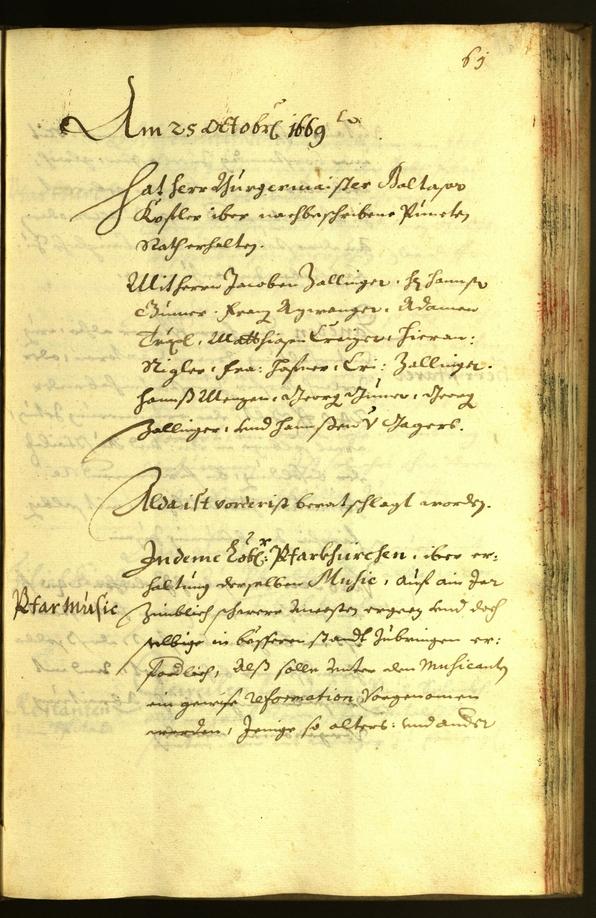 65
Am 25 Octobr: 1669
Hat herr Burgermaister Baltasar
Kofler über nachbeschribene Puncten
Rath erhalten.
Mit herrn Jacoben Zallinger, H: Hannsn
Gumer, Franz Aywanger, Adamen
Matthiasen Hieron:
Rigler, Fra: Hafner, Cri: Zallinger.
Hannß Georg Gumer, Georg
Zallinger, und Hannßen Jagers.
Alda ist vorderist beratschlagt worden.
Pfarmusic
Indeme Löbl: Pfarkhürchen, über er:
haltung derselben Music, auf ain Jar
zimblich schwere uncosten ergeen und doch
selbige in bösseren standt zubringen er:
fordlich, Alß solle unter den Musicanten
ein gewise reformation Vorgenomen
werden, Jenige so alters: und ander